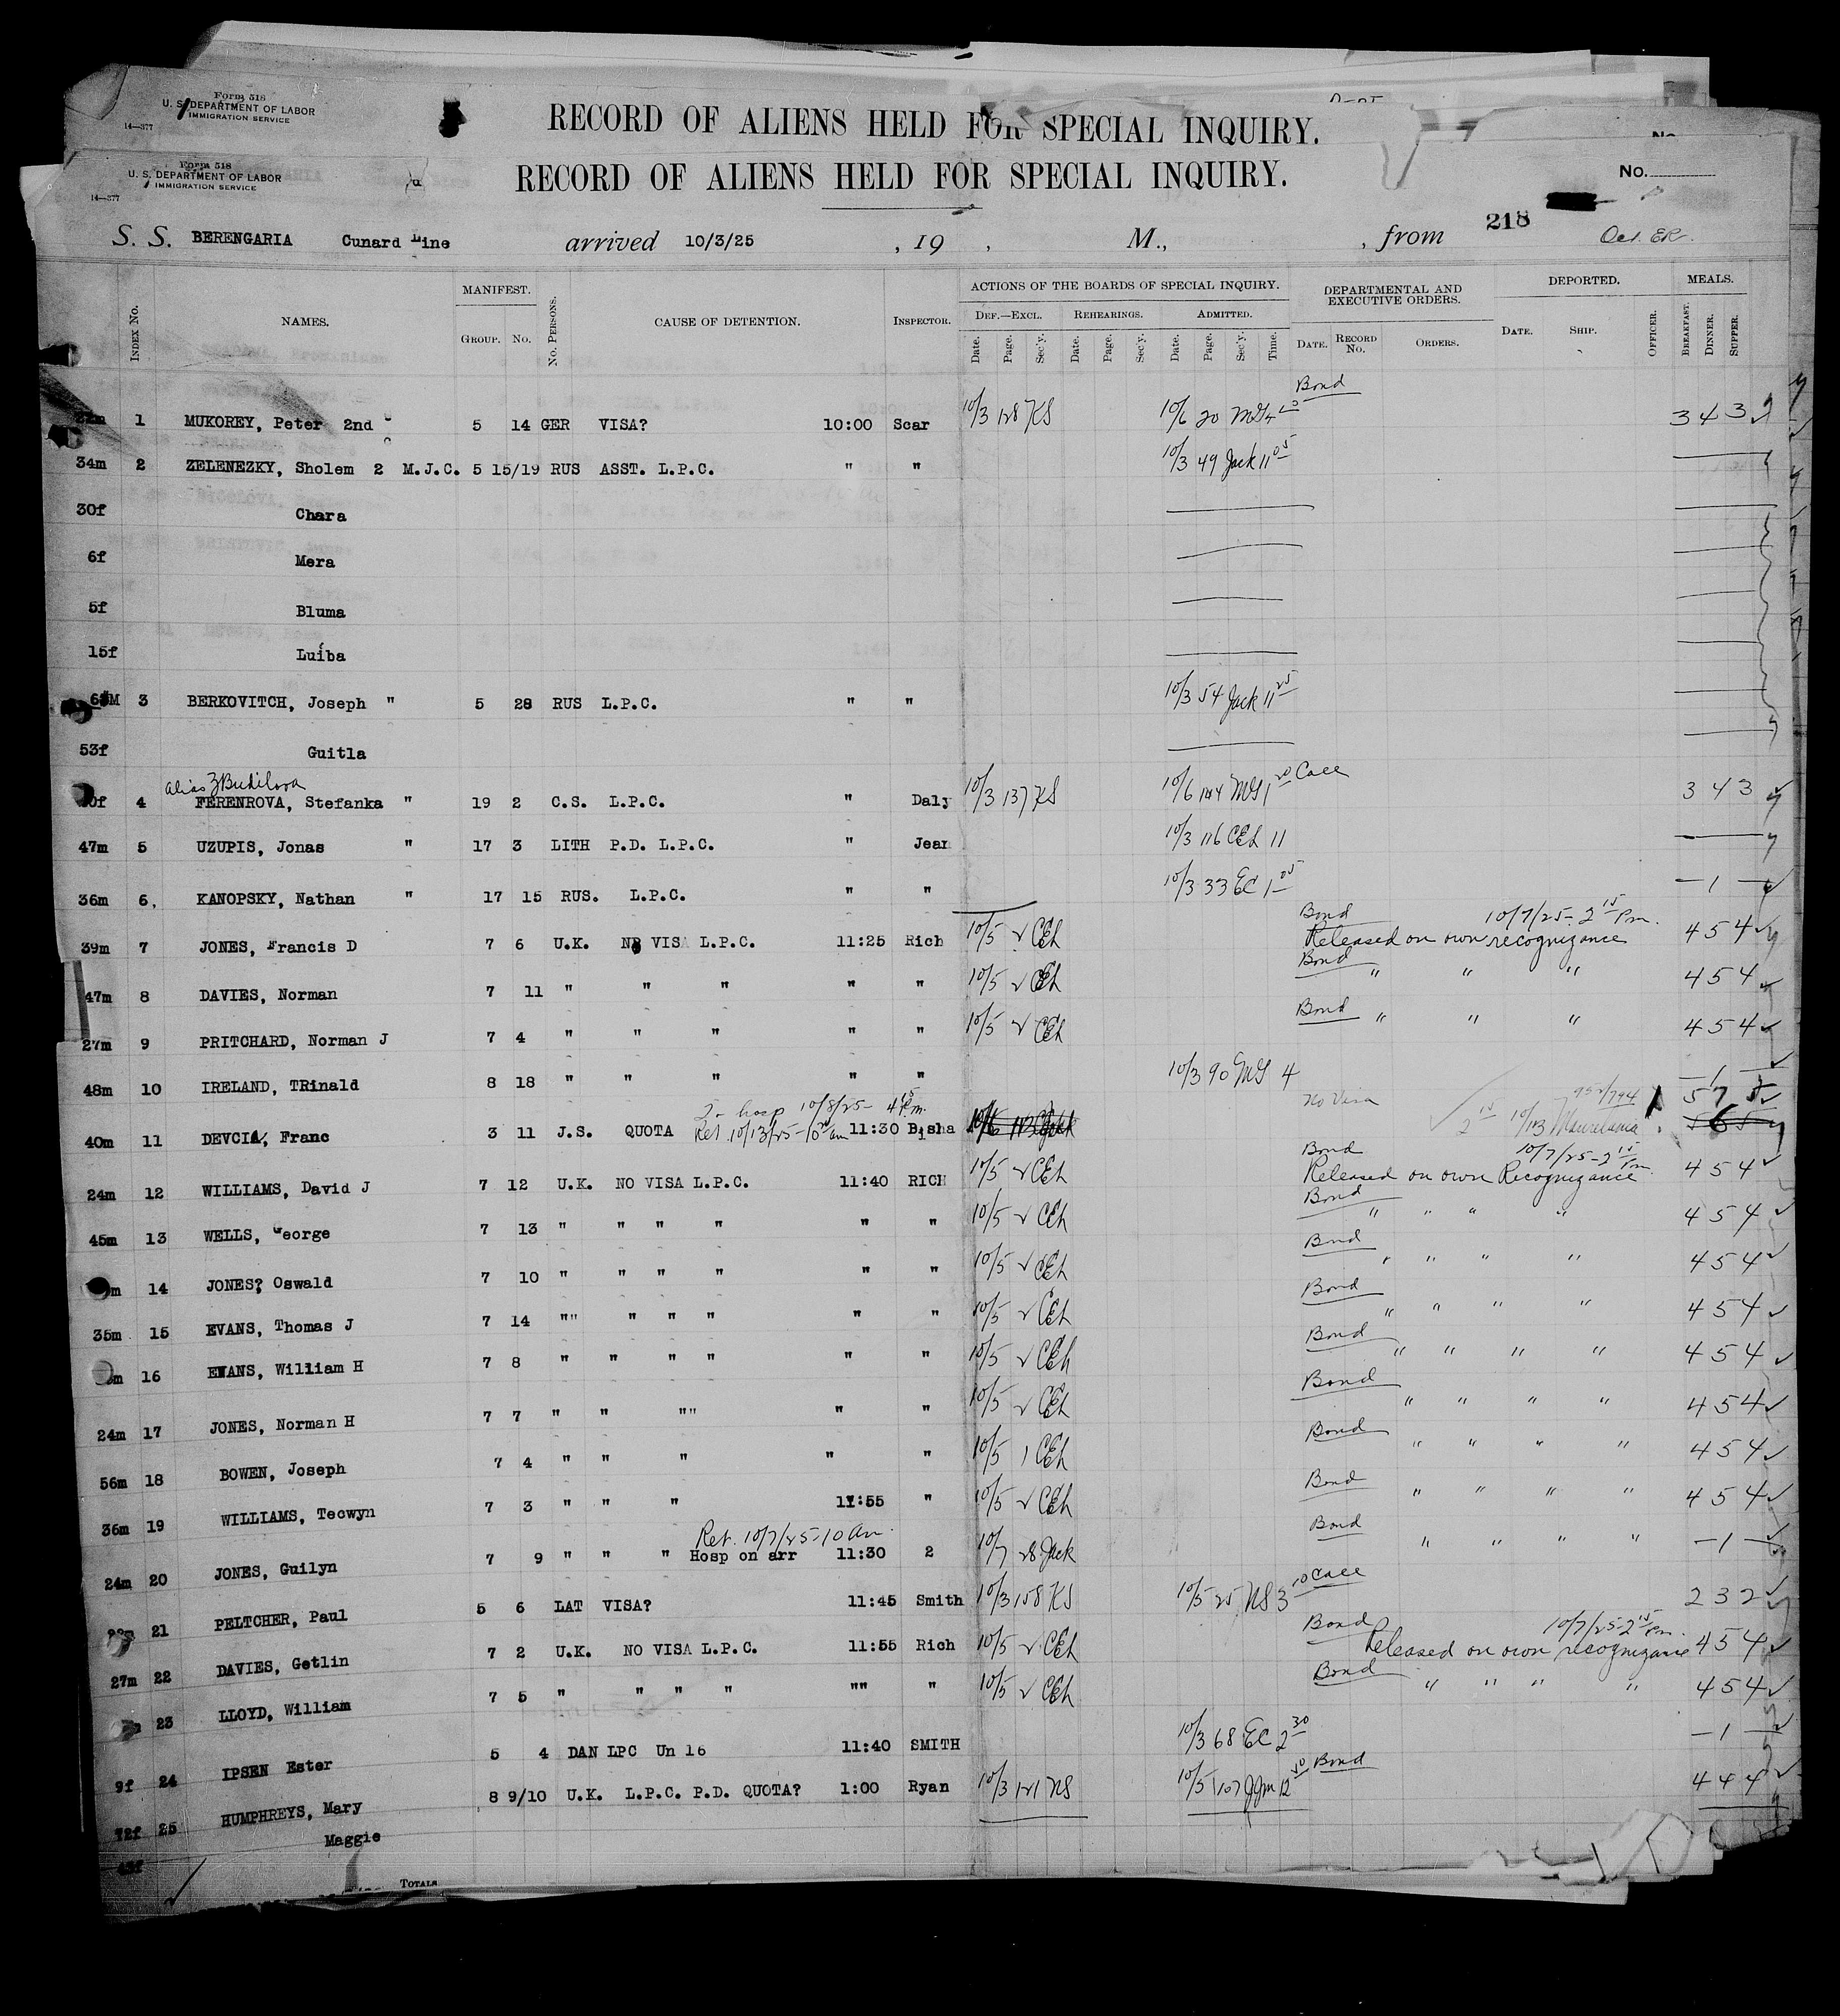 Form 518
U. S. DEPARTMENT OF LABOR
IMMIGRATION SERVICE
14—377
RECORD OF ALIENS HELD FOR SPECIAL INQUIRY.
Form 518
U. S. DEPARTMENT OF LABOR
IMMIGRATION SERVICE
14—377
RECORD OF ALIENS HELD FOR SPECIAL INQUIRY.
No.
S. S. BERENGARIA Cunard Line arrived 10/3/25 , 19 , M., , from 218
INDEX No. NAMES. MANIFEST. GROUP. NO. NO. PERSONS. CAUSE OF DETENTION. INSPECTOR.
ACTIONS OF THE BOARDS OF SPECIAL INQUIRY. DEF.—EXCL. Date. Page. Sec'y. REHEARINGS. Date. Page. Sec'y. ADMITTED. Date. Page. Sec'y. Time.
DEPARTMENTAL AND EXECUTIVE ORDERS. DATE. RECORD NO. ORDERS. DEPORTED. DATE. SHIP. OFFICER. MEALS. BREAKFAST. DINNER. SUPPER.
Bond
1 MUKOREY, Peter 2nd 5 14 GER VISA? 10:00 Scar 10/3 128 KS 10/6 20 3 4 3
34m 2 ZELENEZKY, Sholem 2 M.J.C. 5 15/19 RUS ASST. L.P.C. " " 10/3 49 Jack 11 05
30f Chara
6f Mera
5f Bluma
15f Luiba
3 BERKOVITCH, Joseph " 5 28 RUS L.P.C. " " 10/3 54 Jack 11 25
53f Guitla
alias
4 FERENROVA, Stefanka " 19 2 C.S. L.P.C. " Daly 10/3 137 KS 10/6 144 MG 1 20 3 4 3
47m 5 UZUPIS, Jonas " 17 3 LITH P.D. L.P.C. " Jean 10/3 116 CEh 11
36m 6. KANOPSKY, Nathan " 17 15 RUS. L.P.C. " " 10/3 33 EC 1 05 — 1 —
Bond 10/7/25 - 2 15 Pm.
39m 7 JONES, Francis D 7 6 U.K. NO VISA L.P.C. 11:25 Rich 10/5 2 CEh Released on own recognizance 4 5 4
Bond
47m 8 DAVIES, Norman 7 11 " " " " " 10/5 2 CEh " " " 4 5 4
27m 9 PRITCHARD, Norman J 7 4 " " " " " 10/5 2 CEh Bond " " " 4 5 4
48m 10 IRELAND, TRinald 8 18 " " " " " 10/3 90 MG 4 — 1 —
To hosp 10/8/25 - 4 15 P.m. No Visa 952/794 5 7 5
40m 11 DEVCIA, Franc 3 11 J.S. QUOTA Ret. 10/13/25 - 10 am 11:30 Bisha 2 15 10/13 Mauretania 5 6 5
Bond 10/7/25 - 2 15 Pm.
24m 12 WILLIAMS, David J 7 12 U.K. NO VISA L.P.C. 11:40 RICH 10/5 2 CEh Released on own Recognizance 4 5 4
Bond
45m 13 WELLS, George 7 13 " " " " " " 10/5 2 CEh " " " " 4 5 4
Bond
14 JONES? Oswald 7 10 " " " " " " 10/5 2 CEh " " " " 4 5 4
Bond
35m 15 EVANS, Thomas J 7 14 "" " " " " " 10/5 2 CEh " " " " 4 5 4
Bond
16 EWANS, William H 7 8 " " " " " " 10/5 2 CEh " " " " 4 5 4
Bond
24m 17 JONES, Norman H 7 7 " " "" " " 10/5 2 CEh " " " " 4 5 4
Bond
56m 18 BOWEN, Joseph 7 4 " " " " " 10/5 1 CEh " " " " 4 5 4
Bond
36m 19 WILLIAMS, Tecwyn 7 3 " " " 11:55 " 10/5 2 CEh " " " " 4 5 4
Ret. 10/7/25 - 10 am. Bond
24m 20 JONES, Guilyn 7 9 " " " Hosp on arr 11:30 2 10/7 28 Jack " " " " — 1 —
21 PELTCHER, Paul 5 6 LAT VISA? 11:45 Smith 10/3 158 KS 10/5 25 NS 3 10 2 3 2
Bond 10/7/25 - 2 15 Pm.
27m 22 DAVIES, Getlin 7 2 U.K. NO VISA L.P.C. 11:55 Rich 10/5 2 CEh Released on own recognizance 4 5 4
Bond
23 LLOYD, William 7 5 " " " " "" " 10/5 2 CEh " " " " 4 5 4
9f 24 IPSEN Ester 5 4 DAN LPC Un 16 11:40 SMITH 10/3 68 EC 2 30 — 1 —
72f 25 HUMPHREYS, Mary 8 9/10 U.K. L.P.C. P.D. QUOTA? 1:00 Ryan 10/3 121 NS 10/5 107 12 Bond 4 4 4
Maggie
TOTALS